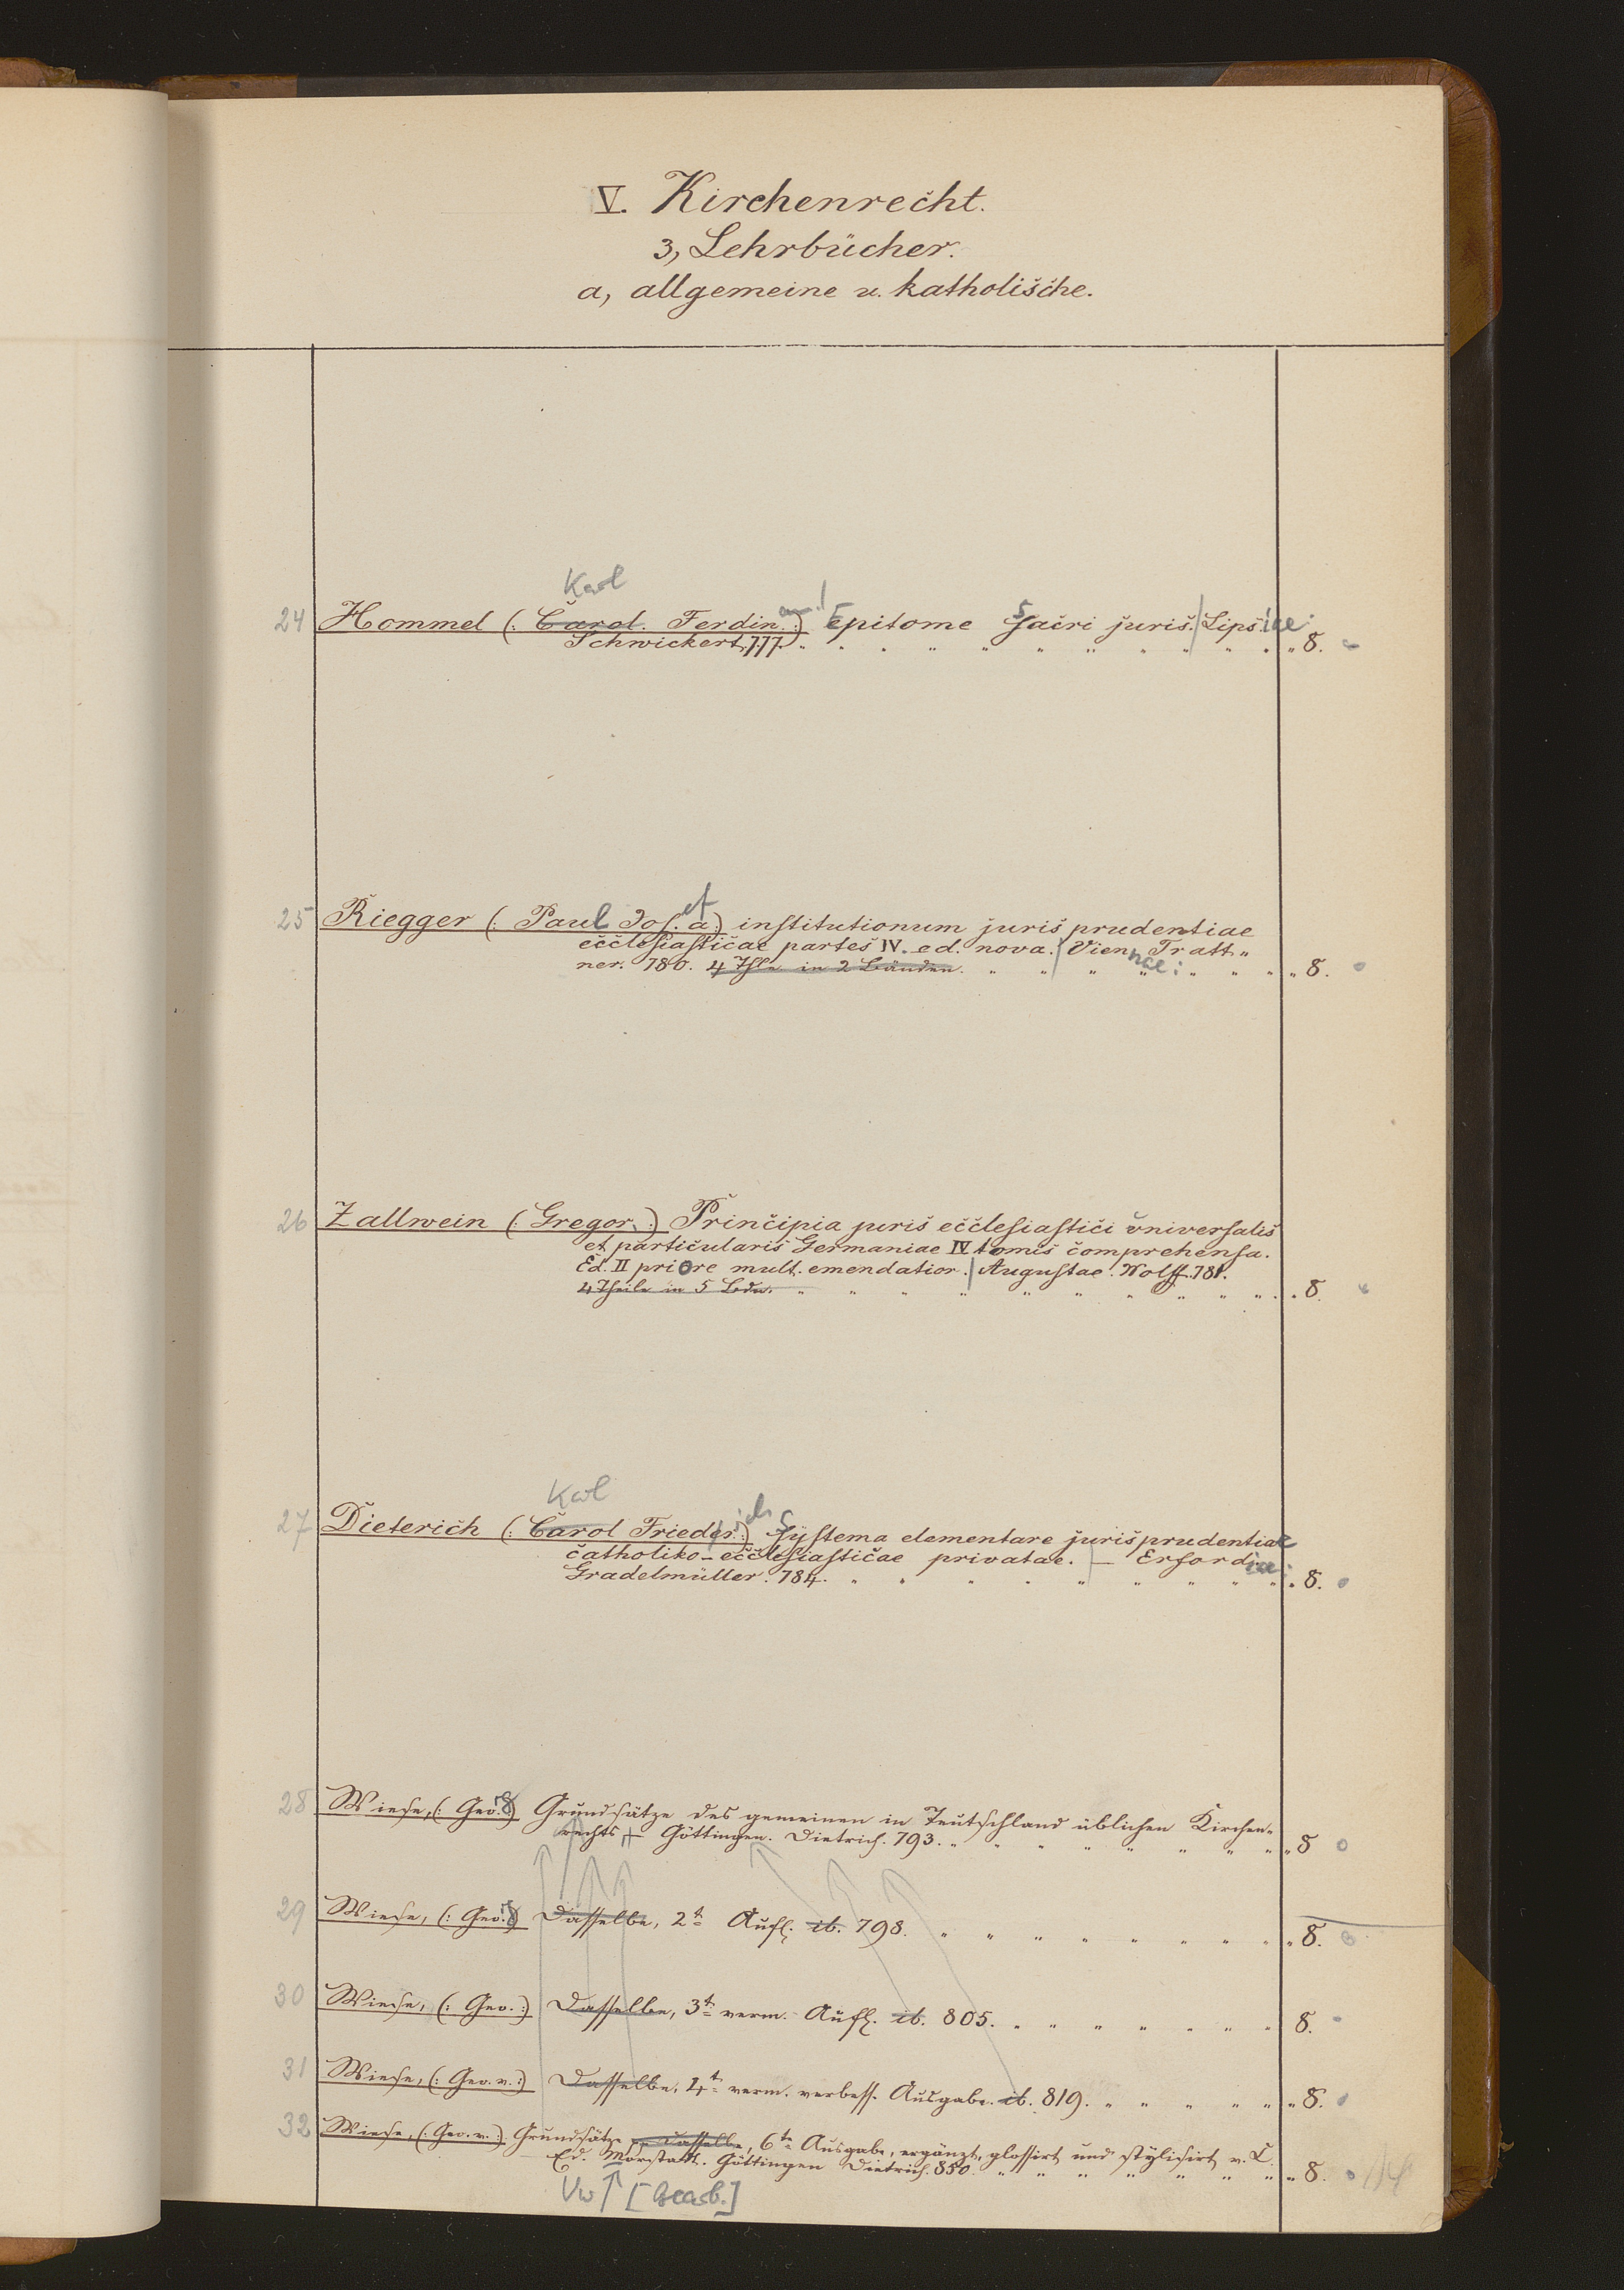 V. Kirchenrecht.
3, Lehrbücher.
a, allgemeine u. katholische.
Karl
24 Hommel (: Carol. Ferdin. :) Epitome Sacri juris. | Lipsiae:
Schwickert. 777. 8.
25 Riegger (: Paul Jos. a :) institutionum juris prudentiae
ecclesiasticae partes IV. ed. nova. | Viennae: Tratt„
ner. 780. 4 Thle in 2 Bänden. 8.
26 Zallwein (: Gregor. :) Principia juris ecclesiastici universalis
et particularis Germaniae IV tomis comprehensa.
Ed. II priore mult. emendatior. | Augustae. Wolff. 781.
4 Theile in 5 Bdn. 8.
Karl
27 Dieterich (: Carol Frieder. :) Systema elementare jurisprudentiae
catholiko-ecclesiasticae privatae. | — Erfordiae:
Gradelmüller. 784. 8.
28 Wiese, (: Geo. :) Grundsätze des gemeinen in Teutschland üblichen Kirchen-
rechts. Göttingen. Dietrich. 793. 8
29 Wiese, (: Geo. :) Dasselbe, 2t Aufl. ib. 798. 8.
30 Wiese, (: Geo. :) Dasselbe, 3t verm. Aufl. ib. 805. 8.
31 Wiese, (: Geo. v. :) Dasselbe, 4t verm. verbess. Ausgabe. ib. 819. 8.
32 Wiese, (: Geo. v. :) Grundsätze pp Dasselbe, 6te Ausgabe, ergänzt, glossirt und stylisirt v. C.
Ed. Morstadt. Göttingen Dietrich. 850. 8.
Vw ↑ [Bearb.]